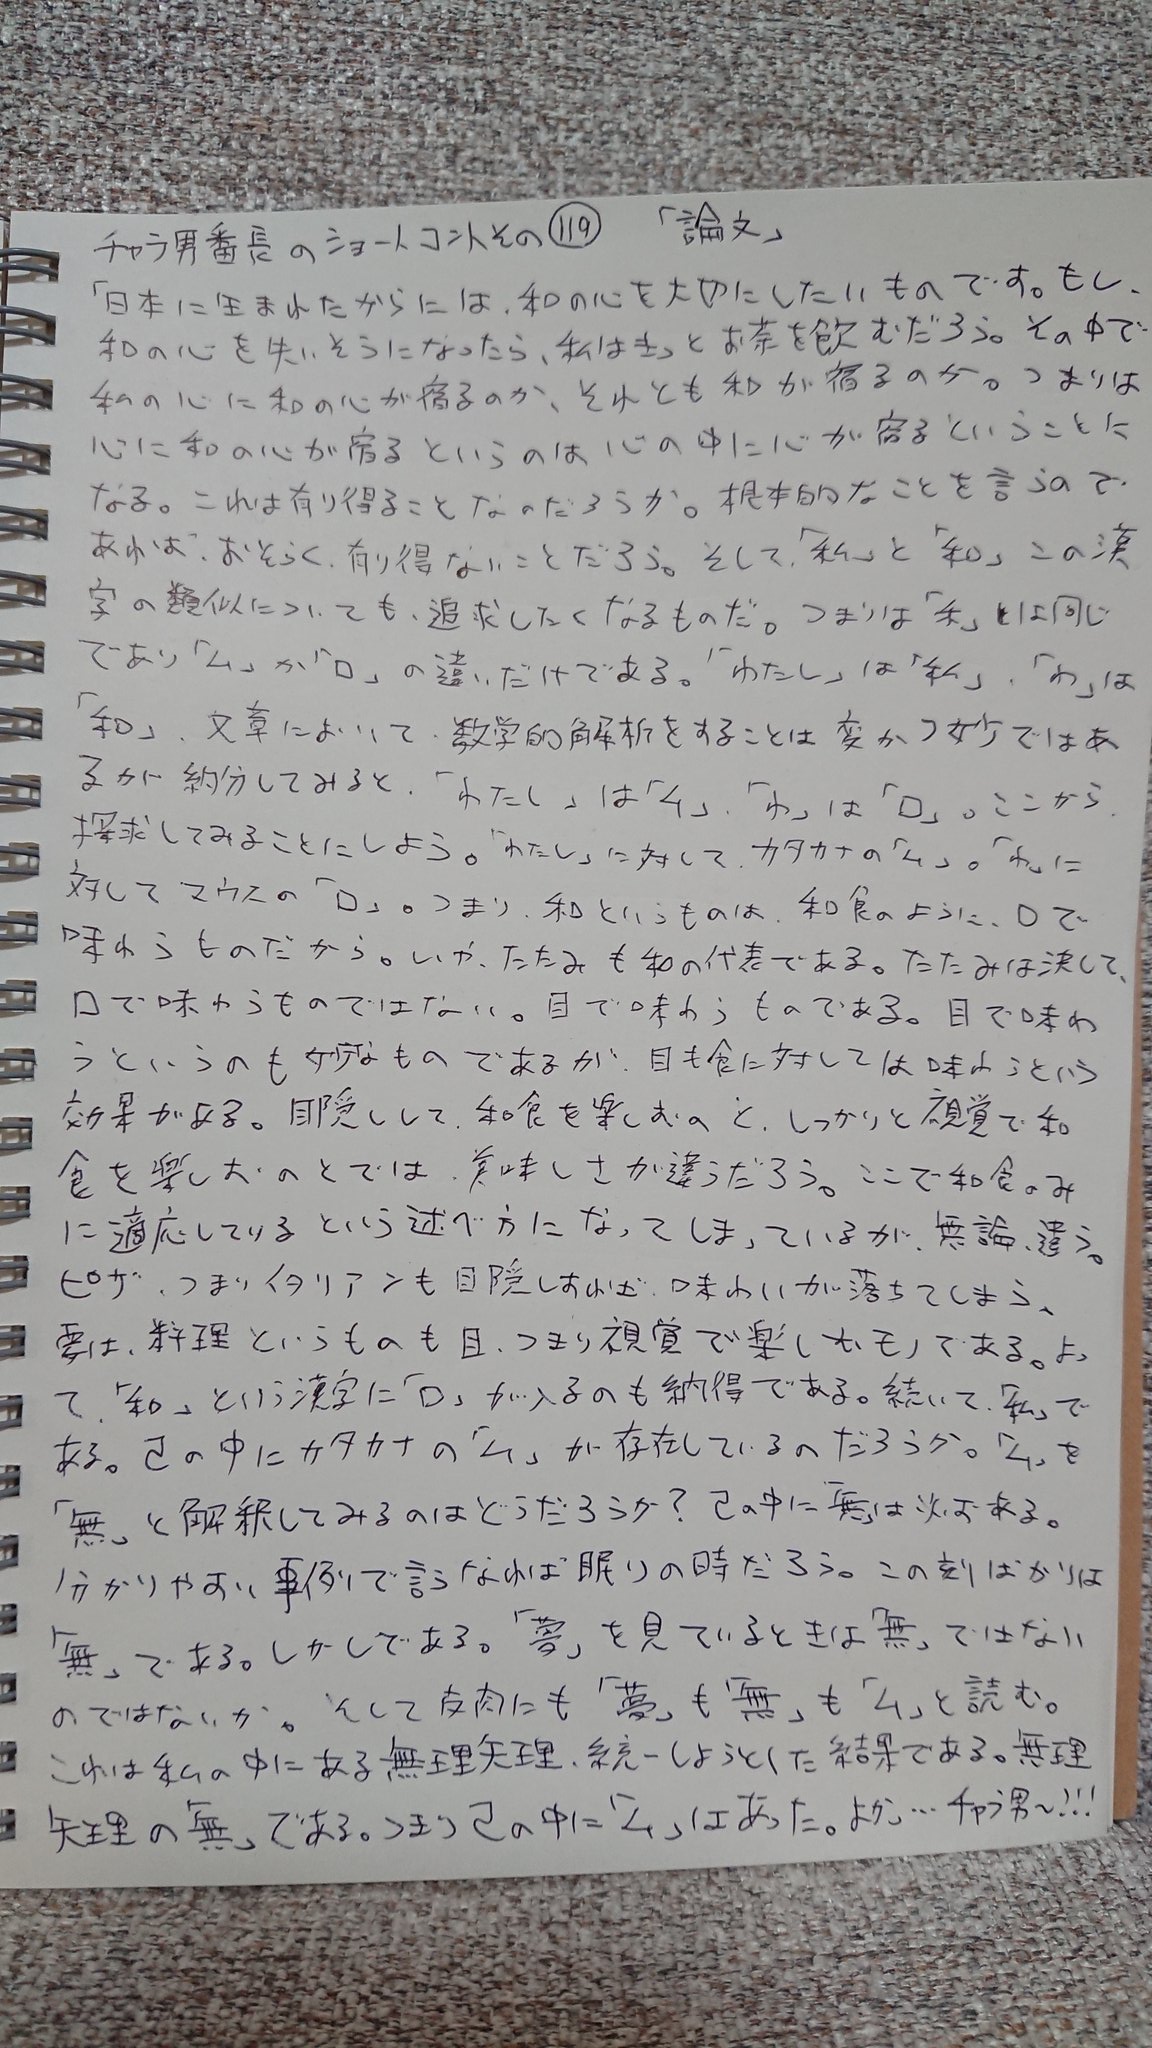 チャラ男番長のショートコントその119 「論文」
「日本に生まれたからには、和の心を大切にしたいものです。もし、
和の心を失いそうになったら、私はきっとお茶を飲むだろう。その中で
私の心に和の心が宿るのか、それとも和が宿るのか。つまりは
心に和の心が宿るというのは心の中に心が宿るということに
なる。これは有り得ることなのだろうか。根本的なことを言うので
あれば、おそらく、有り得ないことだろう。そして、「私」と「和」この漢
字の類似についても、追求したくなるものだ。つまりは「禾」とは同じ
であり「ム」か「口」の違いだけである。「わたし」は「私」、「わ」は
「和」、文章において、数学的解析をすることは変かつ妙ではあ
るが約分してみると、「わたし」は「ム」、「わ」は「口」。ここから、
探求してみることにしよう。「わたし」に対して、カタカナの「ム」。「わ」に
対してマウスの「口」。つまり、和というものは、和食のように、口で
味わうものだから。いや、たたみも和の代表である。たたみは決して、
口で味わうものではない。目で味わうものである。目で味わ
うというのも妙なものであるが、目も食に対しては味わうという
効果がある。目隠しして、和食を楽しむのと、しっかりと視覚で和
食を楽しむのとでは、美味しさが違うだろう。ここで和食のみ
に適応しているという述べ方になってしまっているが、無論、違う。
ピザ、つまりイタリアンも目隠しすれば、味わいが落ちてしまう、
要は、料理というものも目、つまり視覚で楽しむモノである。よっ
て、「和」という漢字に「口」が入るのも納得である。続いて、「私」で
ある。己の中にカタカナの「ム」が存在しているのだろうか。「ム」を
「無」と解釈してみるのはどうだろうか?己の中に「無」は必ずある。
分かりやすい事例で言うなれば眠りの時だろう。この刻ばかりは
「無」である。しかしである。「夢」を見ているときは「無」ではない
のではないか。そして皮肉にも「夢」も「無」も「ム」と読む。
これは私の中にある無理矢理、統一しようとした結果である。無理
矢理の「無」である。つまり己の中に「ム」はあった。よか…チャラ男〜!!!